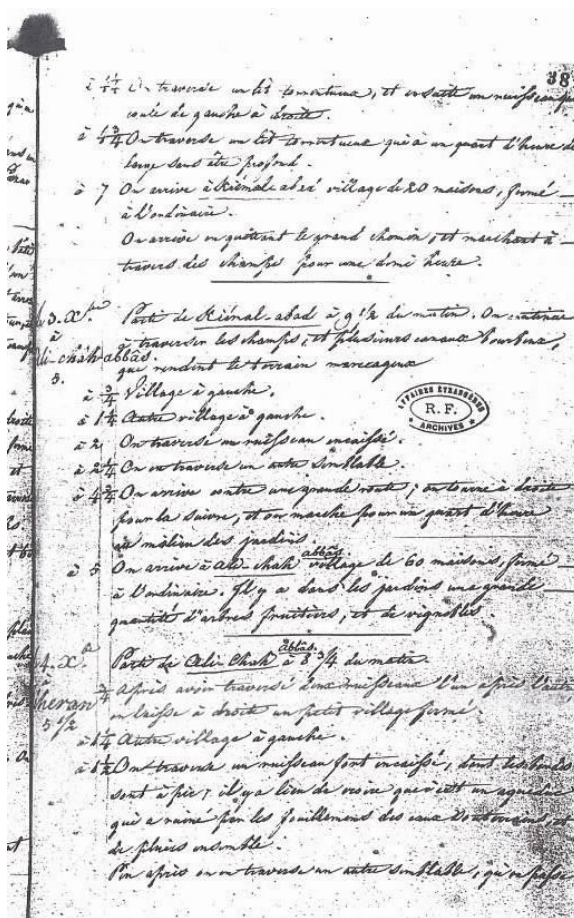 38
à 1 1/4 On traverse un lit tomentueux, et ensuite un ruisseau qui
coule de gauche à droite.
à 1 3/4 On traverse un lit tomentueux qui a un quart d'heure de
large sans être profond.
à 7 On arrive à Kiémale abad village de 20 maisons, fermé
à l'ordinaire.
On arrive en quittant le grand chemin, et marchant à
travers des champs pour une demi heure.
3. X.bre Parti de Kiémal-abad à 9 1/2 du matin. On continue
à
à traverser les champs, et plusieurs canaux bourbeux,
Ali-chah-abbas.
qui rendent le terrain marecageux
5.
à 3/4 Village à gauche.
à 1 1/4 Autre village à gauche.
AFFAIRES ÉTRANGÈRES
R. F.
ARCHIVES
à 2 On traverse un ruisseau encaissé.
à 2 1/4 On en traverse un autre semblable.
à 4 3/4 On arrive contre une grande route; on tourne à droite
pour la suivre, et on marche pour un quart d'heure
au milieu des jardins.
à 5 On arrive à Ali-chah abbas village de 60 maisons, fermé
à l'ordinaire. Il y a dans les jardins une grande
quantité d'arbres fruitiers, et de vignobles
4. X.e Parti de Ali-Chah abbas à 8 3/4 du matin.
à
heran
5 1/2
3/4 Après avoir traversé deux ruisseaux l'un après l'autre,
on laisse à droite un petit village fermé.
à 1 1/4 Autre village à gauche.
à 1 1/2 On traverse un ruisseau fort encaissé, dont les bords
sont à pic; il y a lieu de croire que c'est un aqueduc
qui a ruiné par les fouillemens des eaux souterraines, et
de pluies ensemble.
Peu après on en traverse un autre semblable, qu'on passe